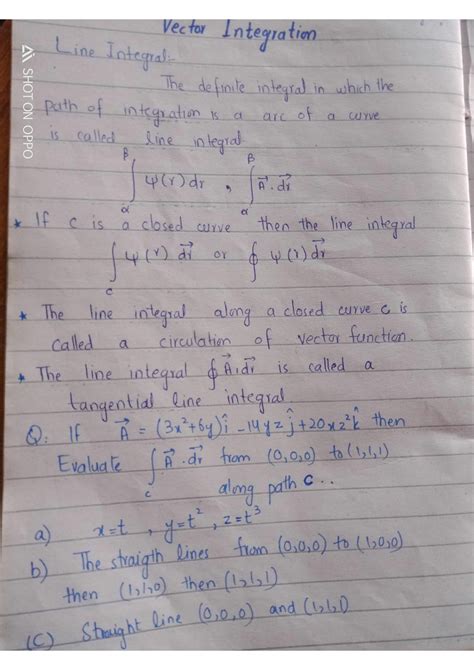 Vector Integration
Line Integral:-
The definite integral in which the
path of integration is a arc of a curve
is called line integral
∫_α^β ψ(r) dr , ∫_α^β A⃗ . dr⃗
* If c is a closed curve then the line integral
∫_c ψ(r) dr⃗ or ∮ ψ(r) dr⃗
* The line integral along a closed curve c is
called a circulation of vector function.
* The line integral ∮ A⃗ . dr⃗ is called a
tangential line integral
Q: If A⃗ = (3x²+6y)î - 14yz ĵ + 20xz² k̂ then
Evaluate ∫_c A⃗ . dr⃗ from (0,0,0) to (1,1,1)
along path c . .
a) x=t , y=t² , z=t³
b) The straigth lines from (0,0,0) to (1,0,0)
then (1,1,0) then (1,1,1)
(C) Straight line (0,0,0) and (1,1,1)
SHOT ON OPPO